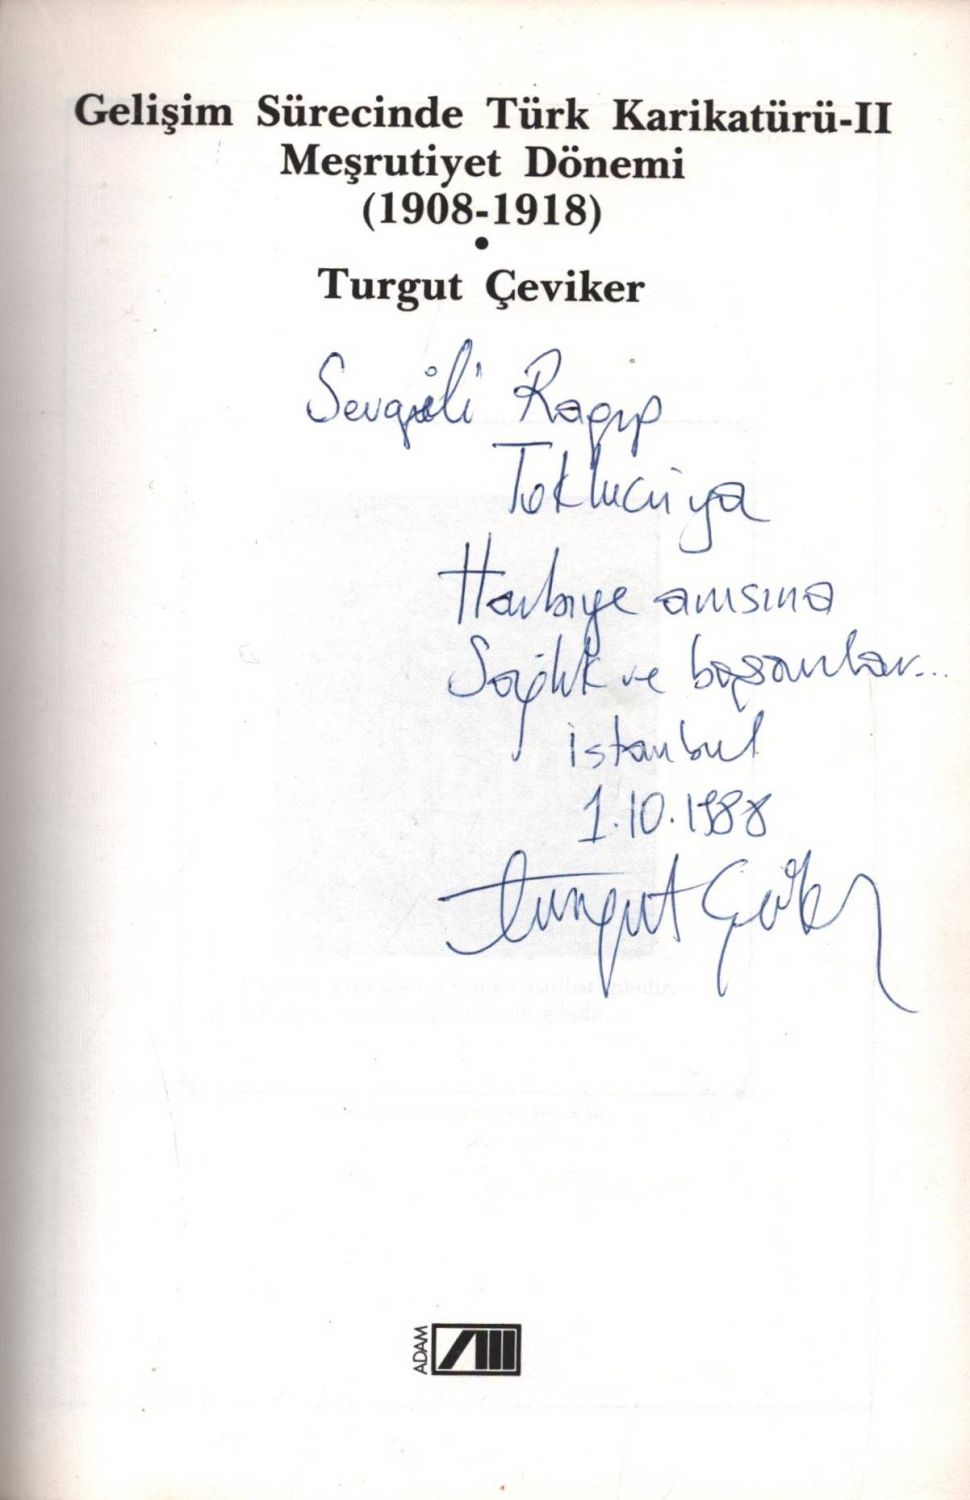 Gelişim Sürecinde Türk Karikatürü-II
Meşrutiyet Dönemi
(1908-1918)
•
Turgut Çeviker
Sevgili Ragıp
Toklucu'ya
Harbiye anısına
Sağlık ve başarılar...
istanbul
1.10.1988
Turgut Çeviker
ADAM